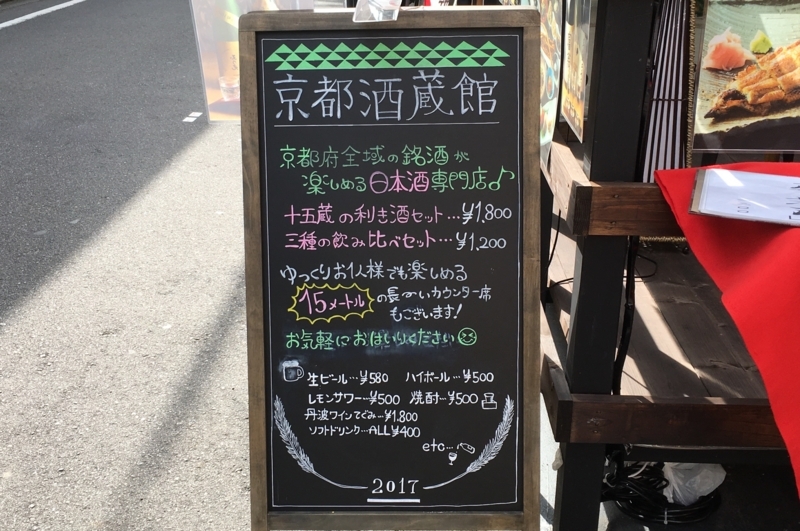 京都酒蔵館
京都府全域の銘酒が
楽しめる日本酒専門店♪
十五蔵の利き酒セット…¥1,800
三種の飲み比べセット…¥1,200
ゆっくりお1人様でも楽しめる
15メートルの長〜いカウンター席
もございます!
お気軽におはいりください
生ビール…¥580 ハイボール…¥500
レモンサワー…¥500 焼酎…¥500
丹波ワインてぐみ…¥1,800
ソフトドリンク…ALL¥400
etc…
2017